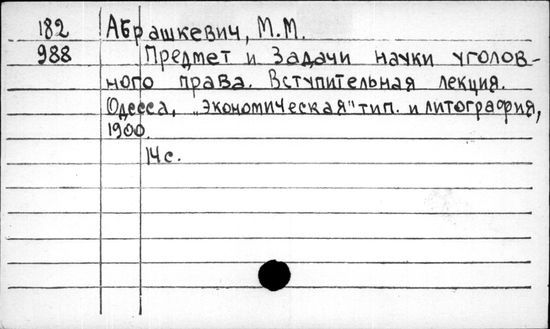 182 Абрашкевич, М.М.
988 Предмет и задачи науки уголов-
ного права. Вступительная лекция.
Одесса, „Экономическая" тип. и литография,
1900.
14с.